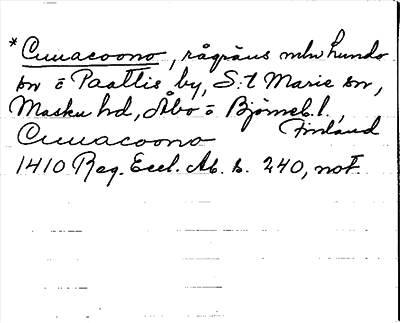 *Cuuacoono, rågräns mln Lundo
sn o Paattis by, S:t Marie sn,
Masku hd, Åbo o Björneb. l.,
Finland
Cuuacoono
1410 Reg. Eccl. Ab. s. 240, not.